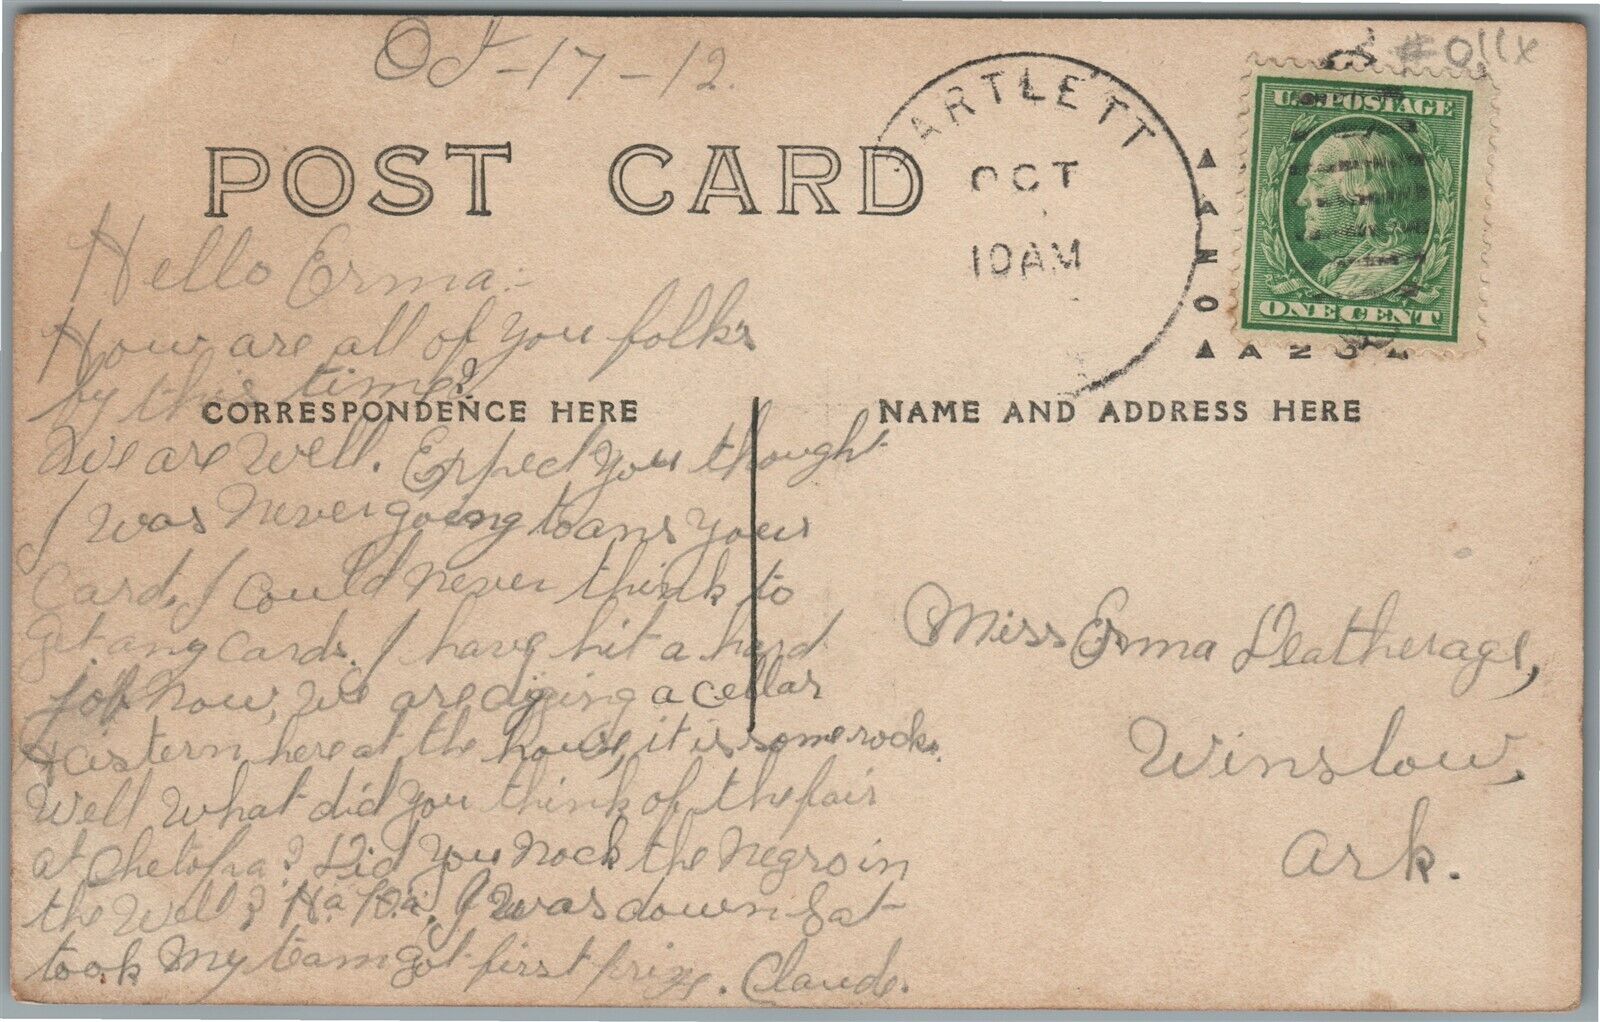 Oct-17-12.
#011x
BARTLETT
OCT
10AM
U.S. POSTAGE
ONE CENT
POST CARD
Hello Erma:-
How are all of you folks
by this time?
CORRESPONDENCE HERE
NAME AND ADDRESS HERE
We are well. Expect you thought
I was never going to ans your
card. I could never think to
get any cards. I have hit a hard
job now, we are diging a cellar
+ cistern here at the house, it is some rock.
Well what did you think of the fair
at Chetopa? Did you nock the negro in
the well? Ha. Ha. I was down Sat-
took my team got first prize. Claude.
Miss Erma Leatherage,
Winslow,
Ark.